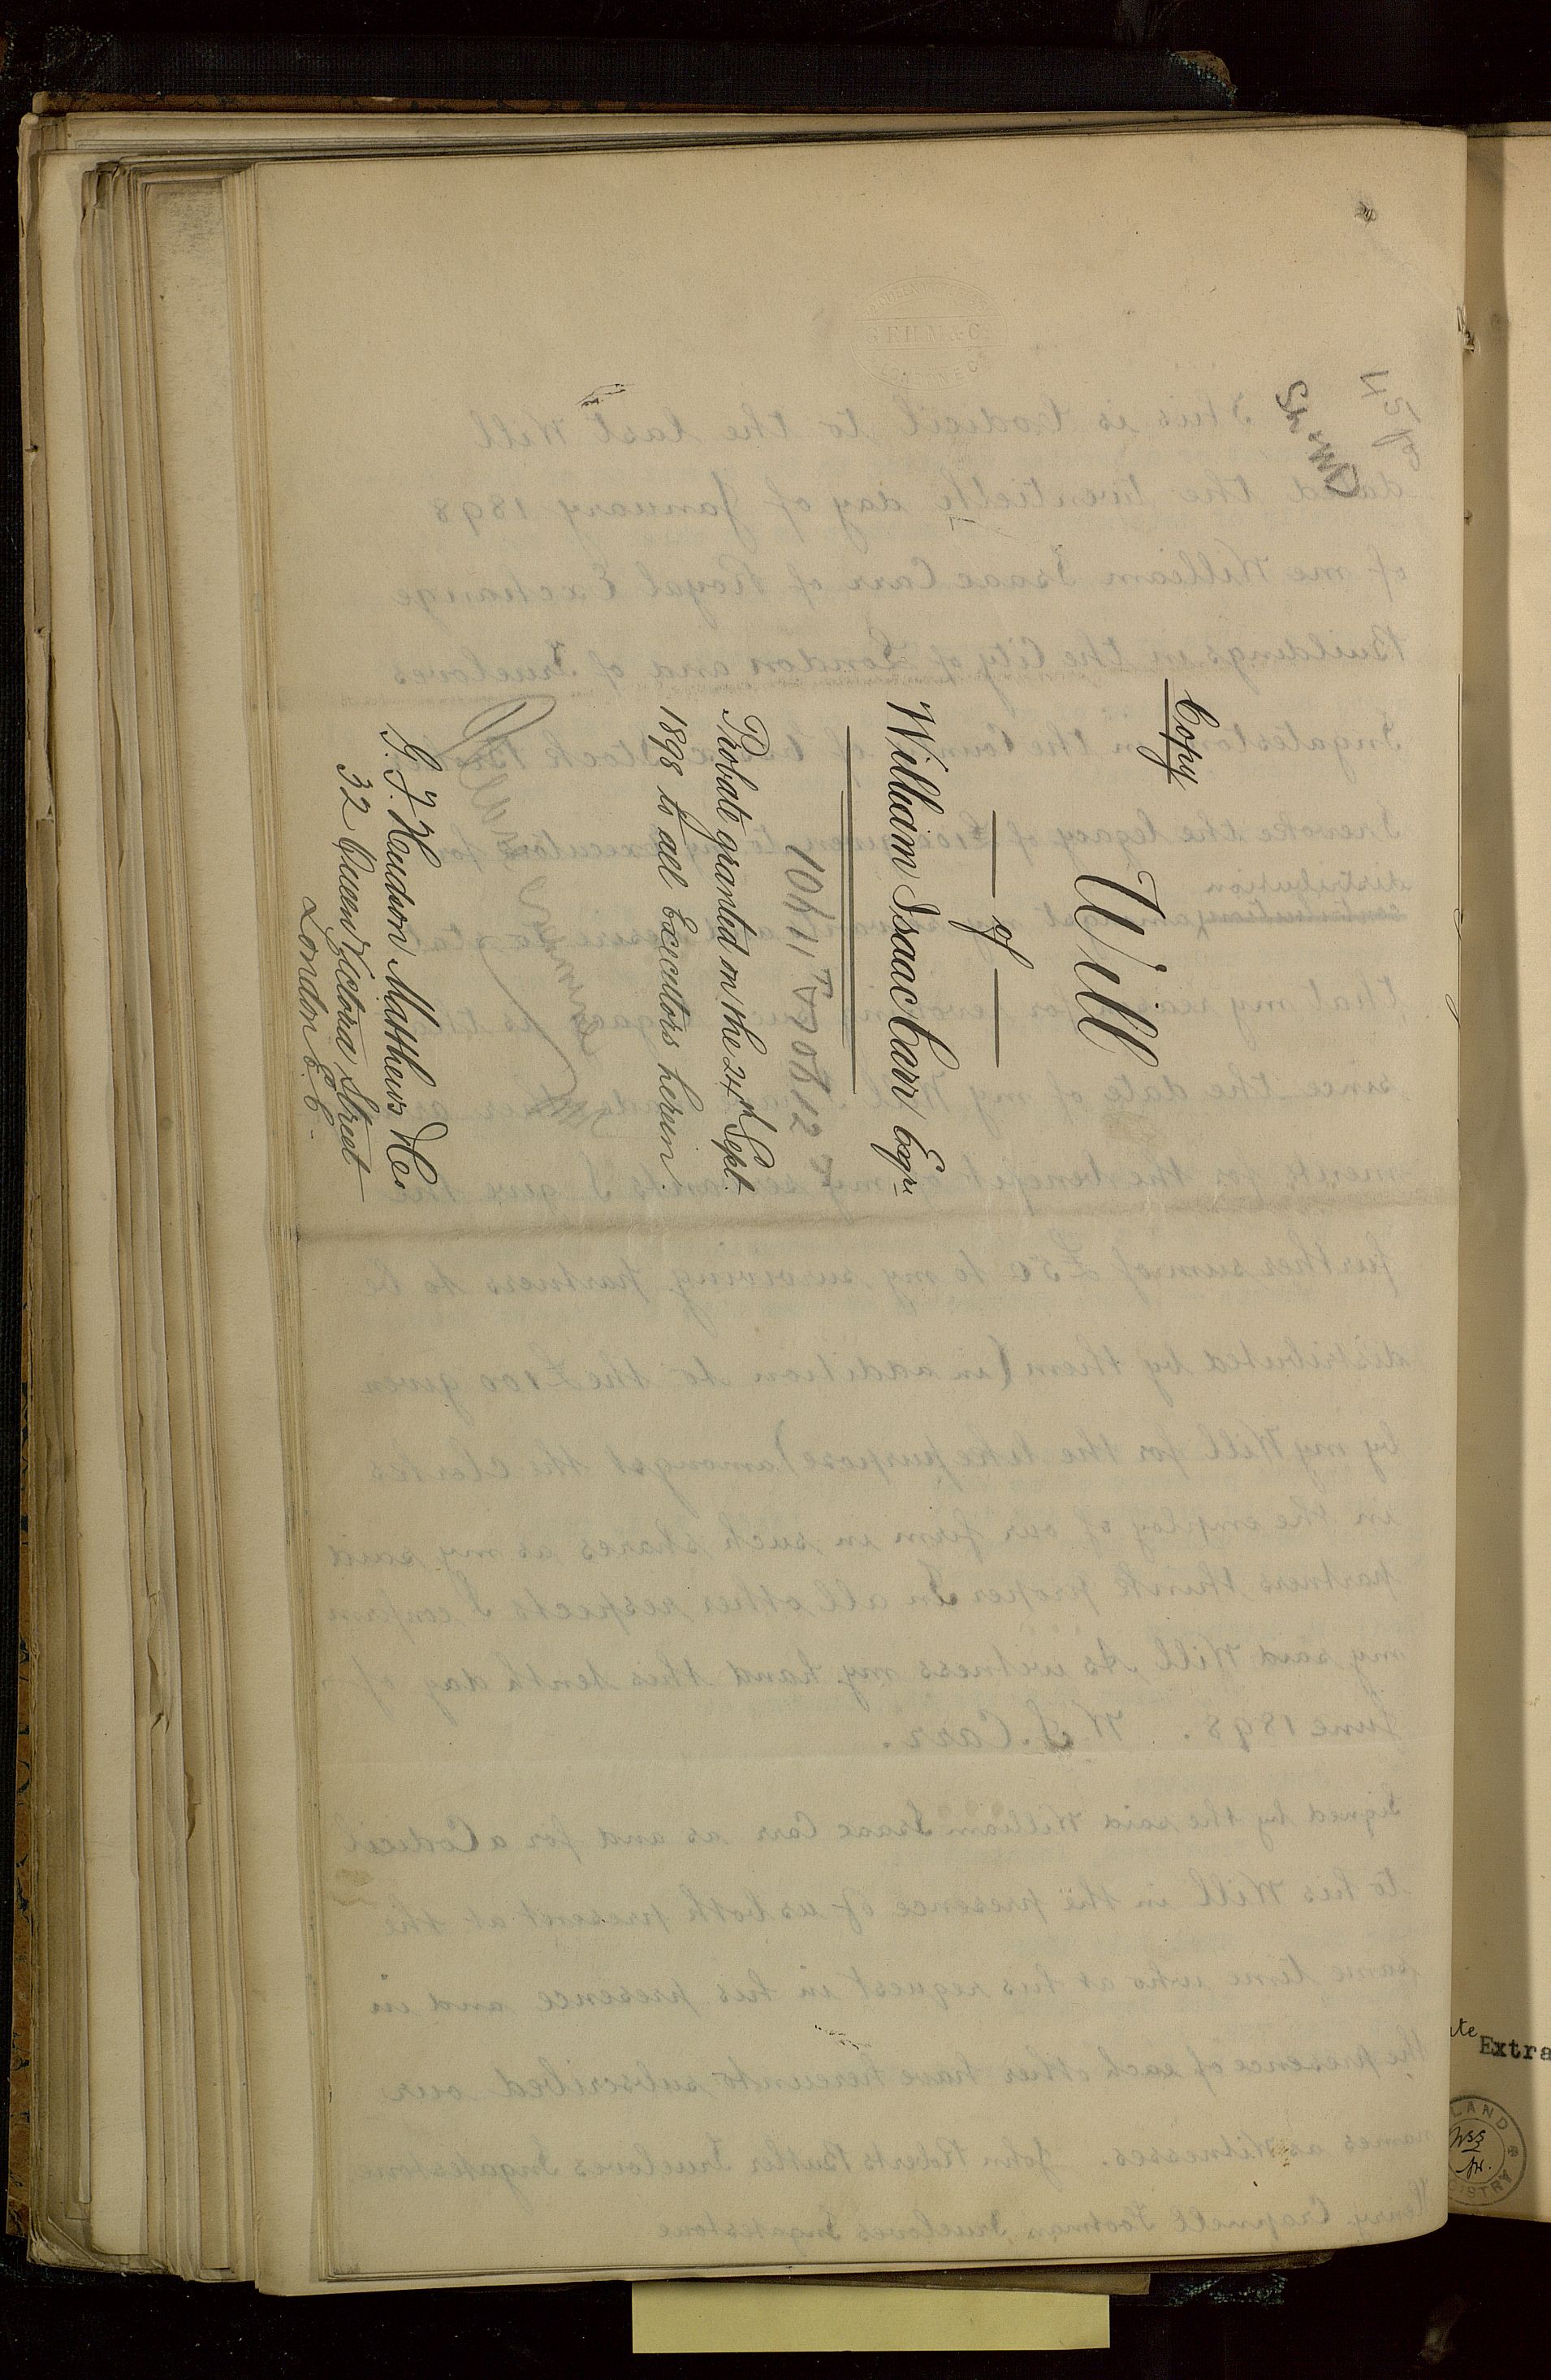 Copy
Will
of
William Isaac Carr Esqre
Probate granted on the 24th Sept.
1898 to all Executors herein.
G. F. Hudson Matthews & Co.
32 Queen Victoria Street
London E.C.
This is Codicil to the last Will
dated the twentieth day of January 1898
of me William Isaac Carr of Royal Exchange
Buildings in the City of London and of Trueloves
Ingatestone in the County of Essex Stock Broker
I revoke the legacy of £100 given to my Executors for
distribution
contribution amongst my servants and desire to state
that my reason for revoking such legacy is that
since the date of my Will I have made other
ments for the benefit of my servants I give the
further sum of £50 to my surviving partners to be
distributed by them (in addition to the £100 given
by my Will for the like purpose) amongst the clerks
in the employ of our firm in such shares as my said
partners think proper In all other respects I confirm
my said Will As witness my hand this tenth day of
June 1898. W. I. Carr.
Signed by the said William Isaac Carr as and for a Codicil
to his Will in the presence of us both present at the
same time who at his request in his presence and in
the presence of each other have hereunto subscribed our
names as Witnesses. John Roberts Butler Trueloves Ingatestone
Henry Footman Trueloves Ingatestone
Extra